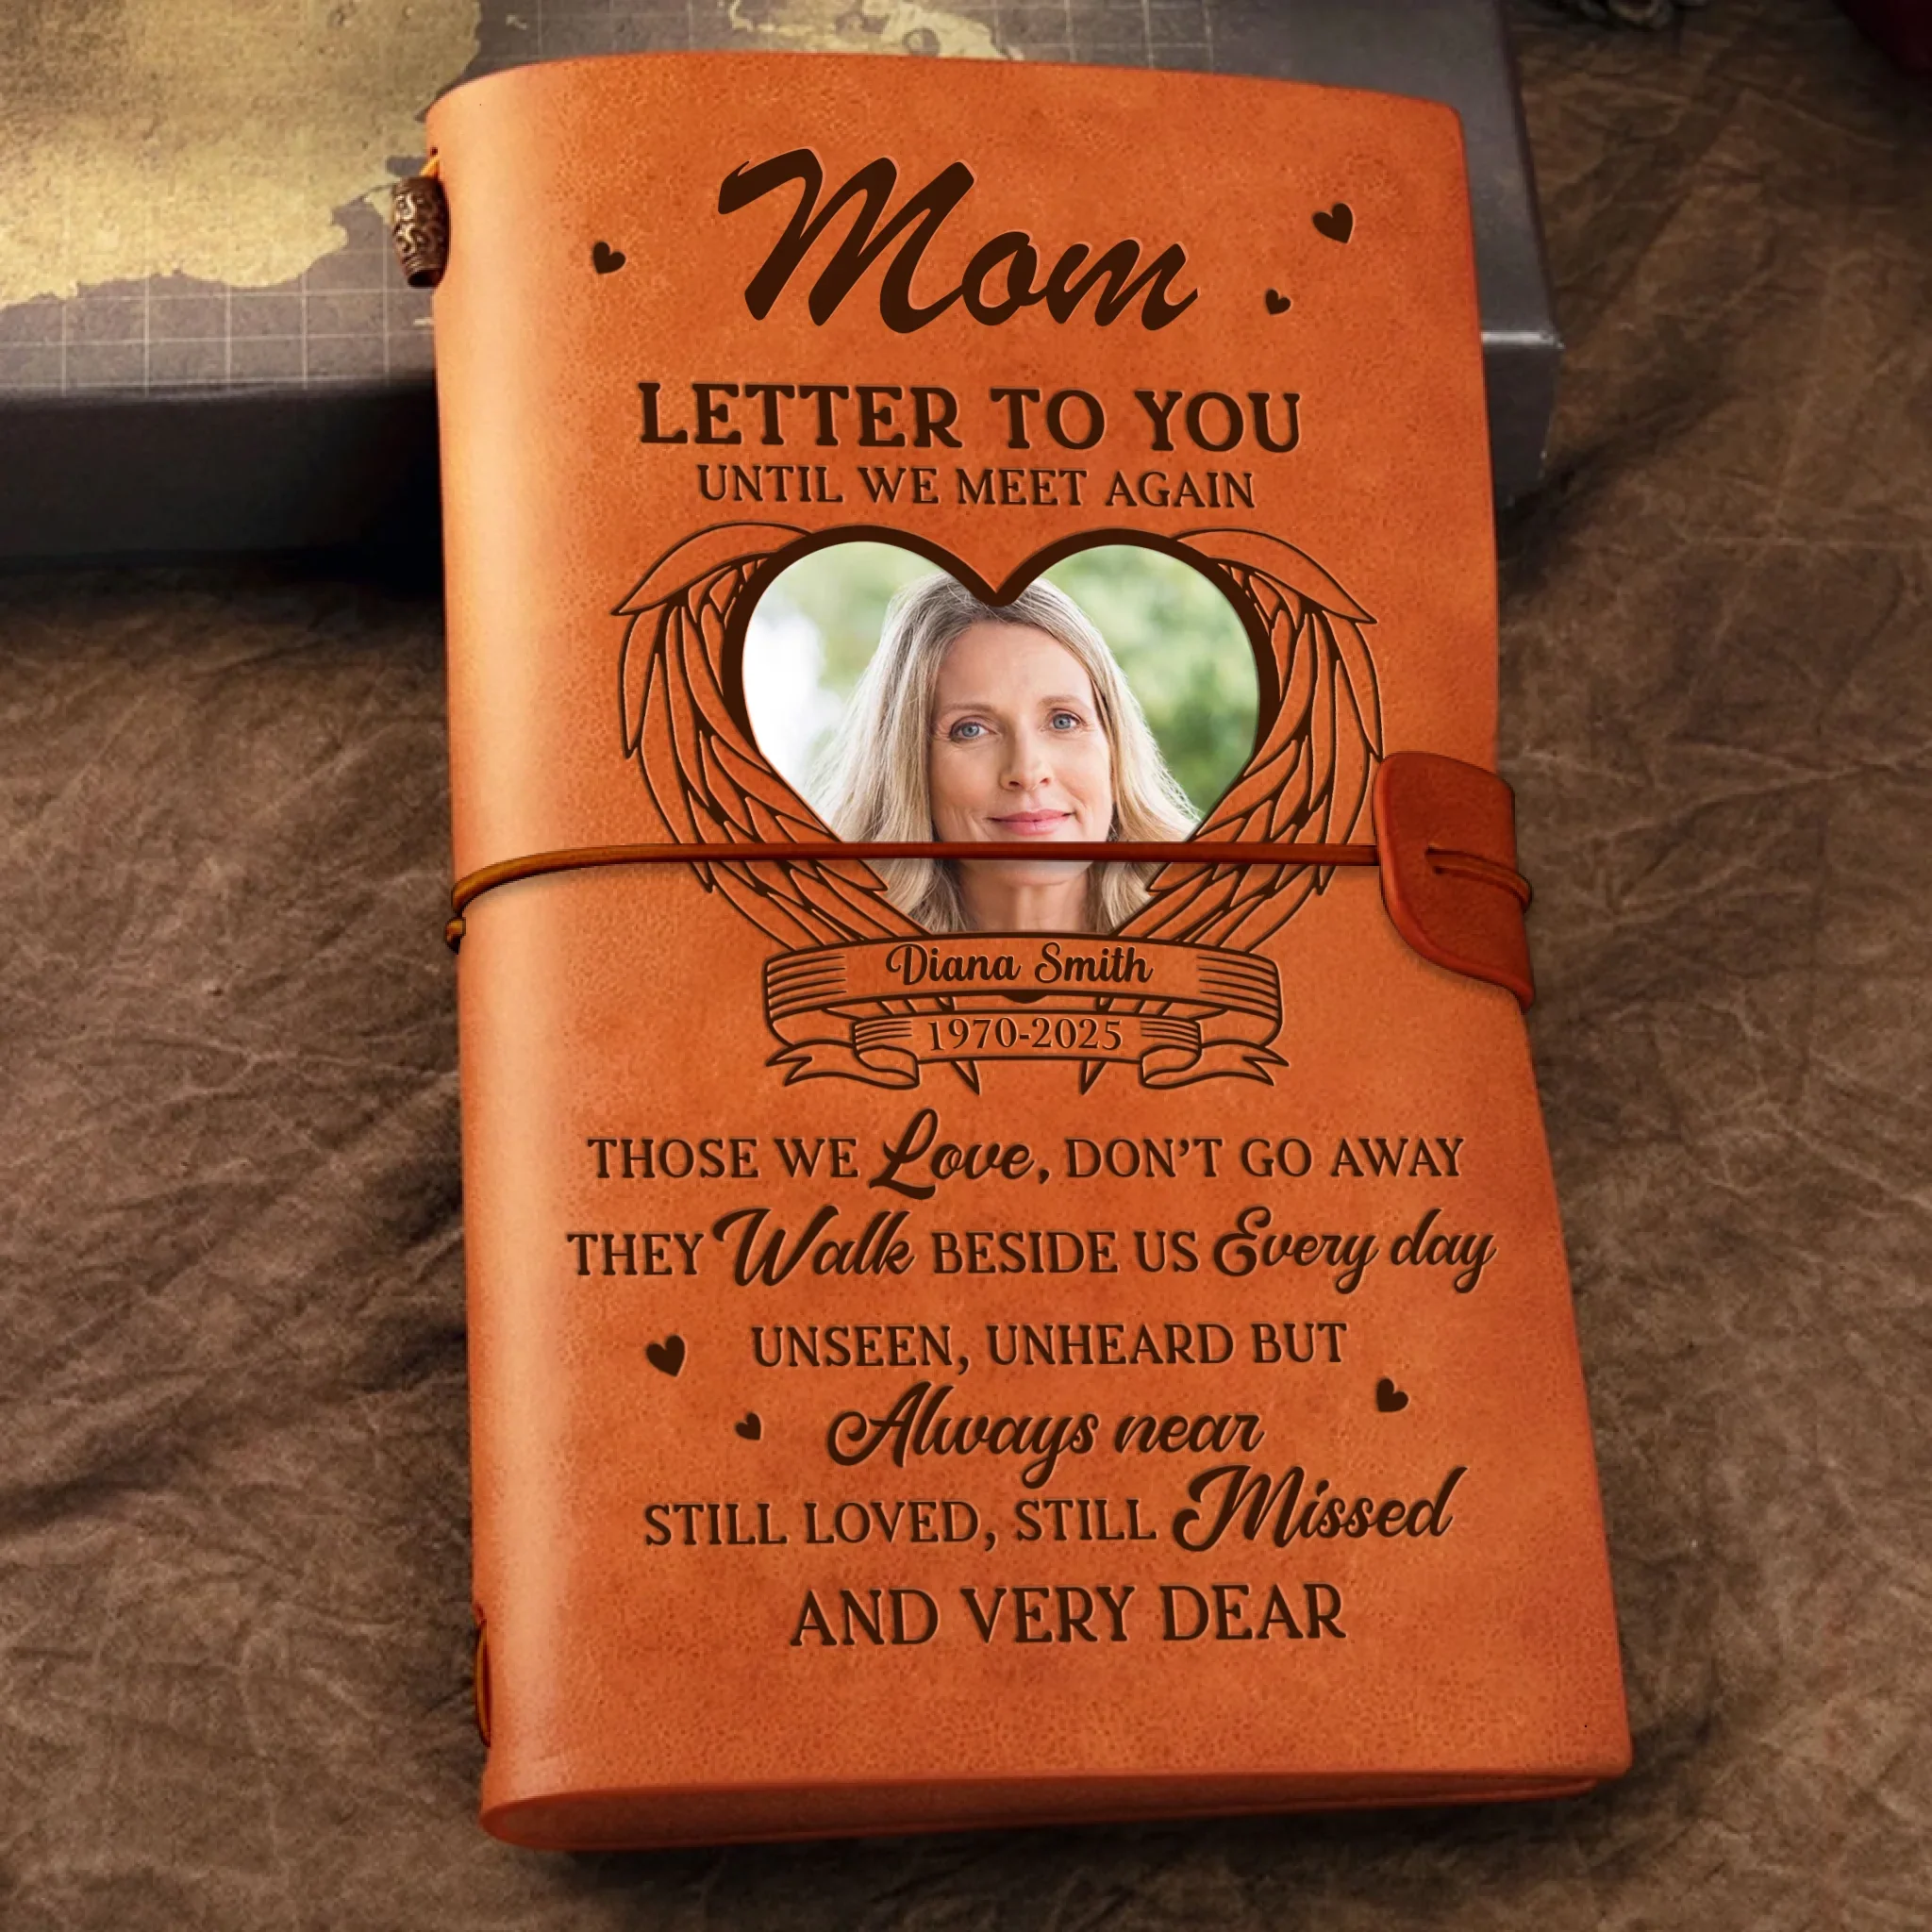 Mom
LETTER TO YOU
UNTIL WE MEET AGAIN
Diana Smith
1970-2025
THOSE WE Love, DON'T GO AWAY
THEY Walk BESIDE US Every day
UNSEEN, UNHEARD BUT
Always near
STILL LOVED, STILL Missed
AND VERY DEAR